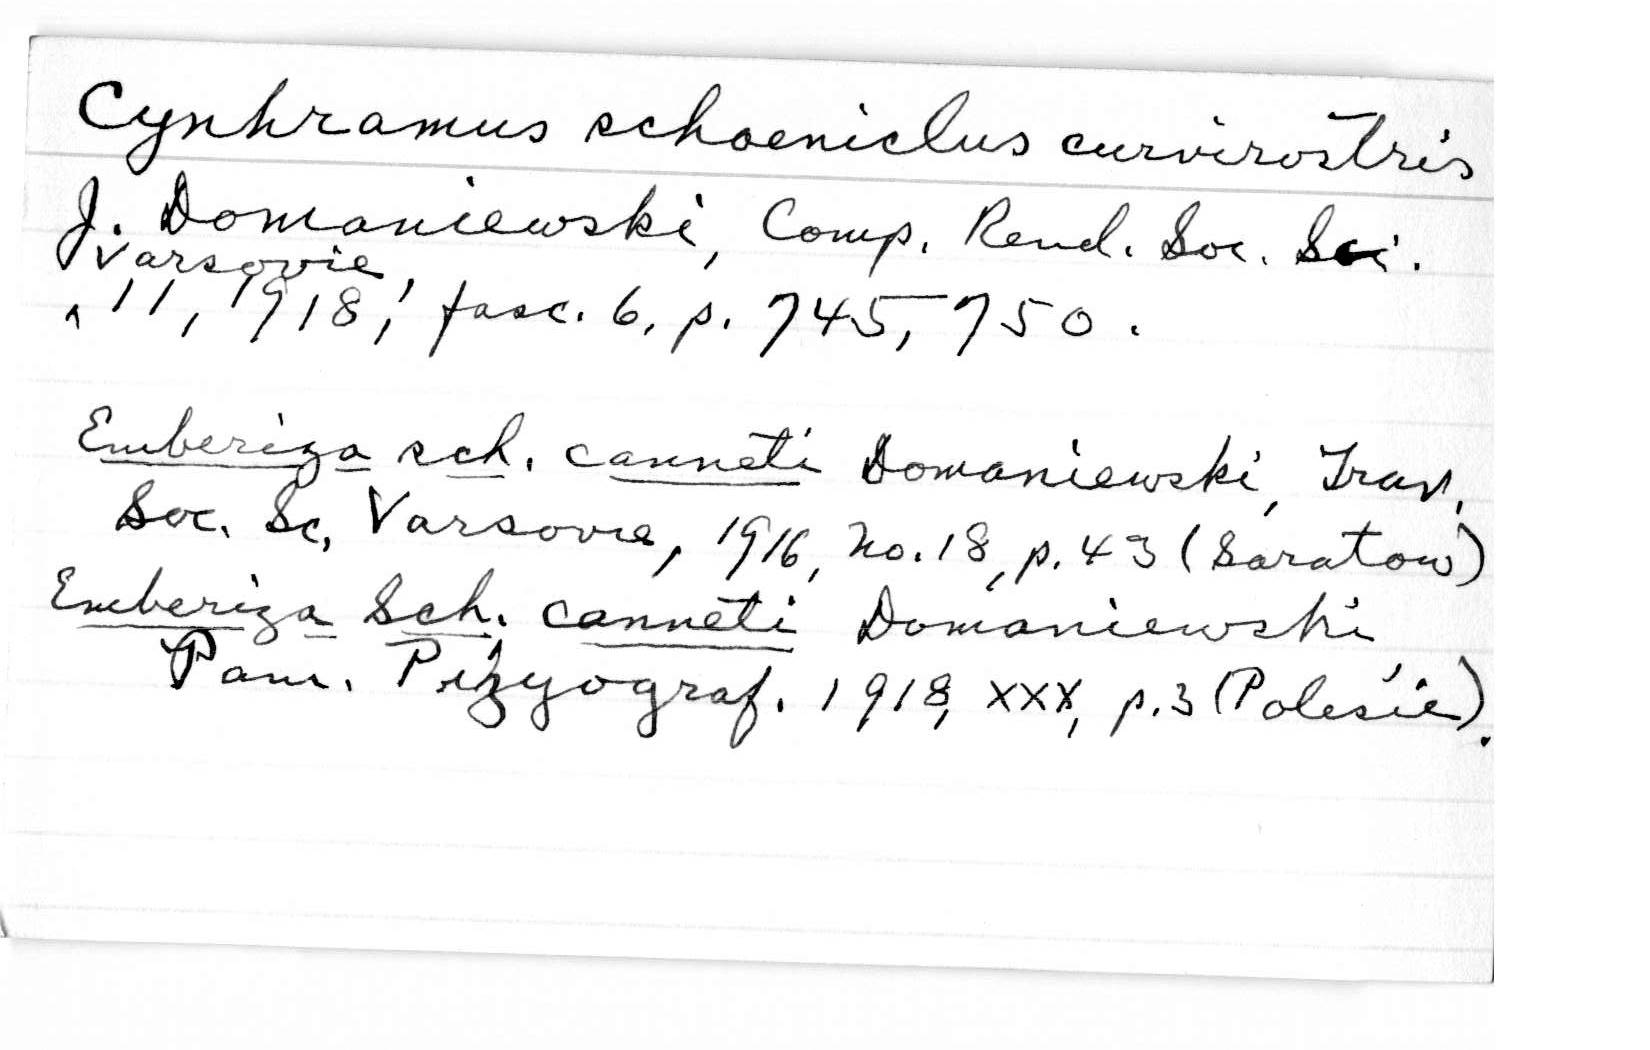 Cynhramus schoeniclus curvirostris
J. Domaniewski, Comp. Rend. Soc. Sci.
Varsovie,
^ 11, 1918, fasc. 6, p. 745, 750.
Emberiza sch. canneti Domaniewski, Trav.
Soc. Sc, Varsovie, 1916, no. 18, p. 43 (Saratow)
Emberiza Sch. canneti Domaniewski
Pam. Pizyograf. 1918, XXX, p. 3 (Polesié).